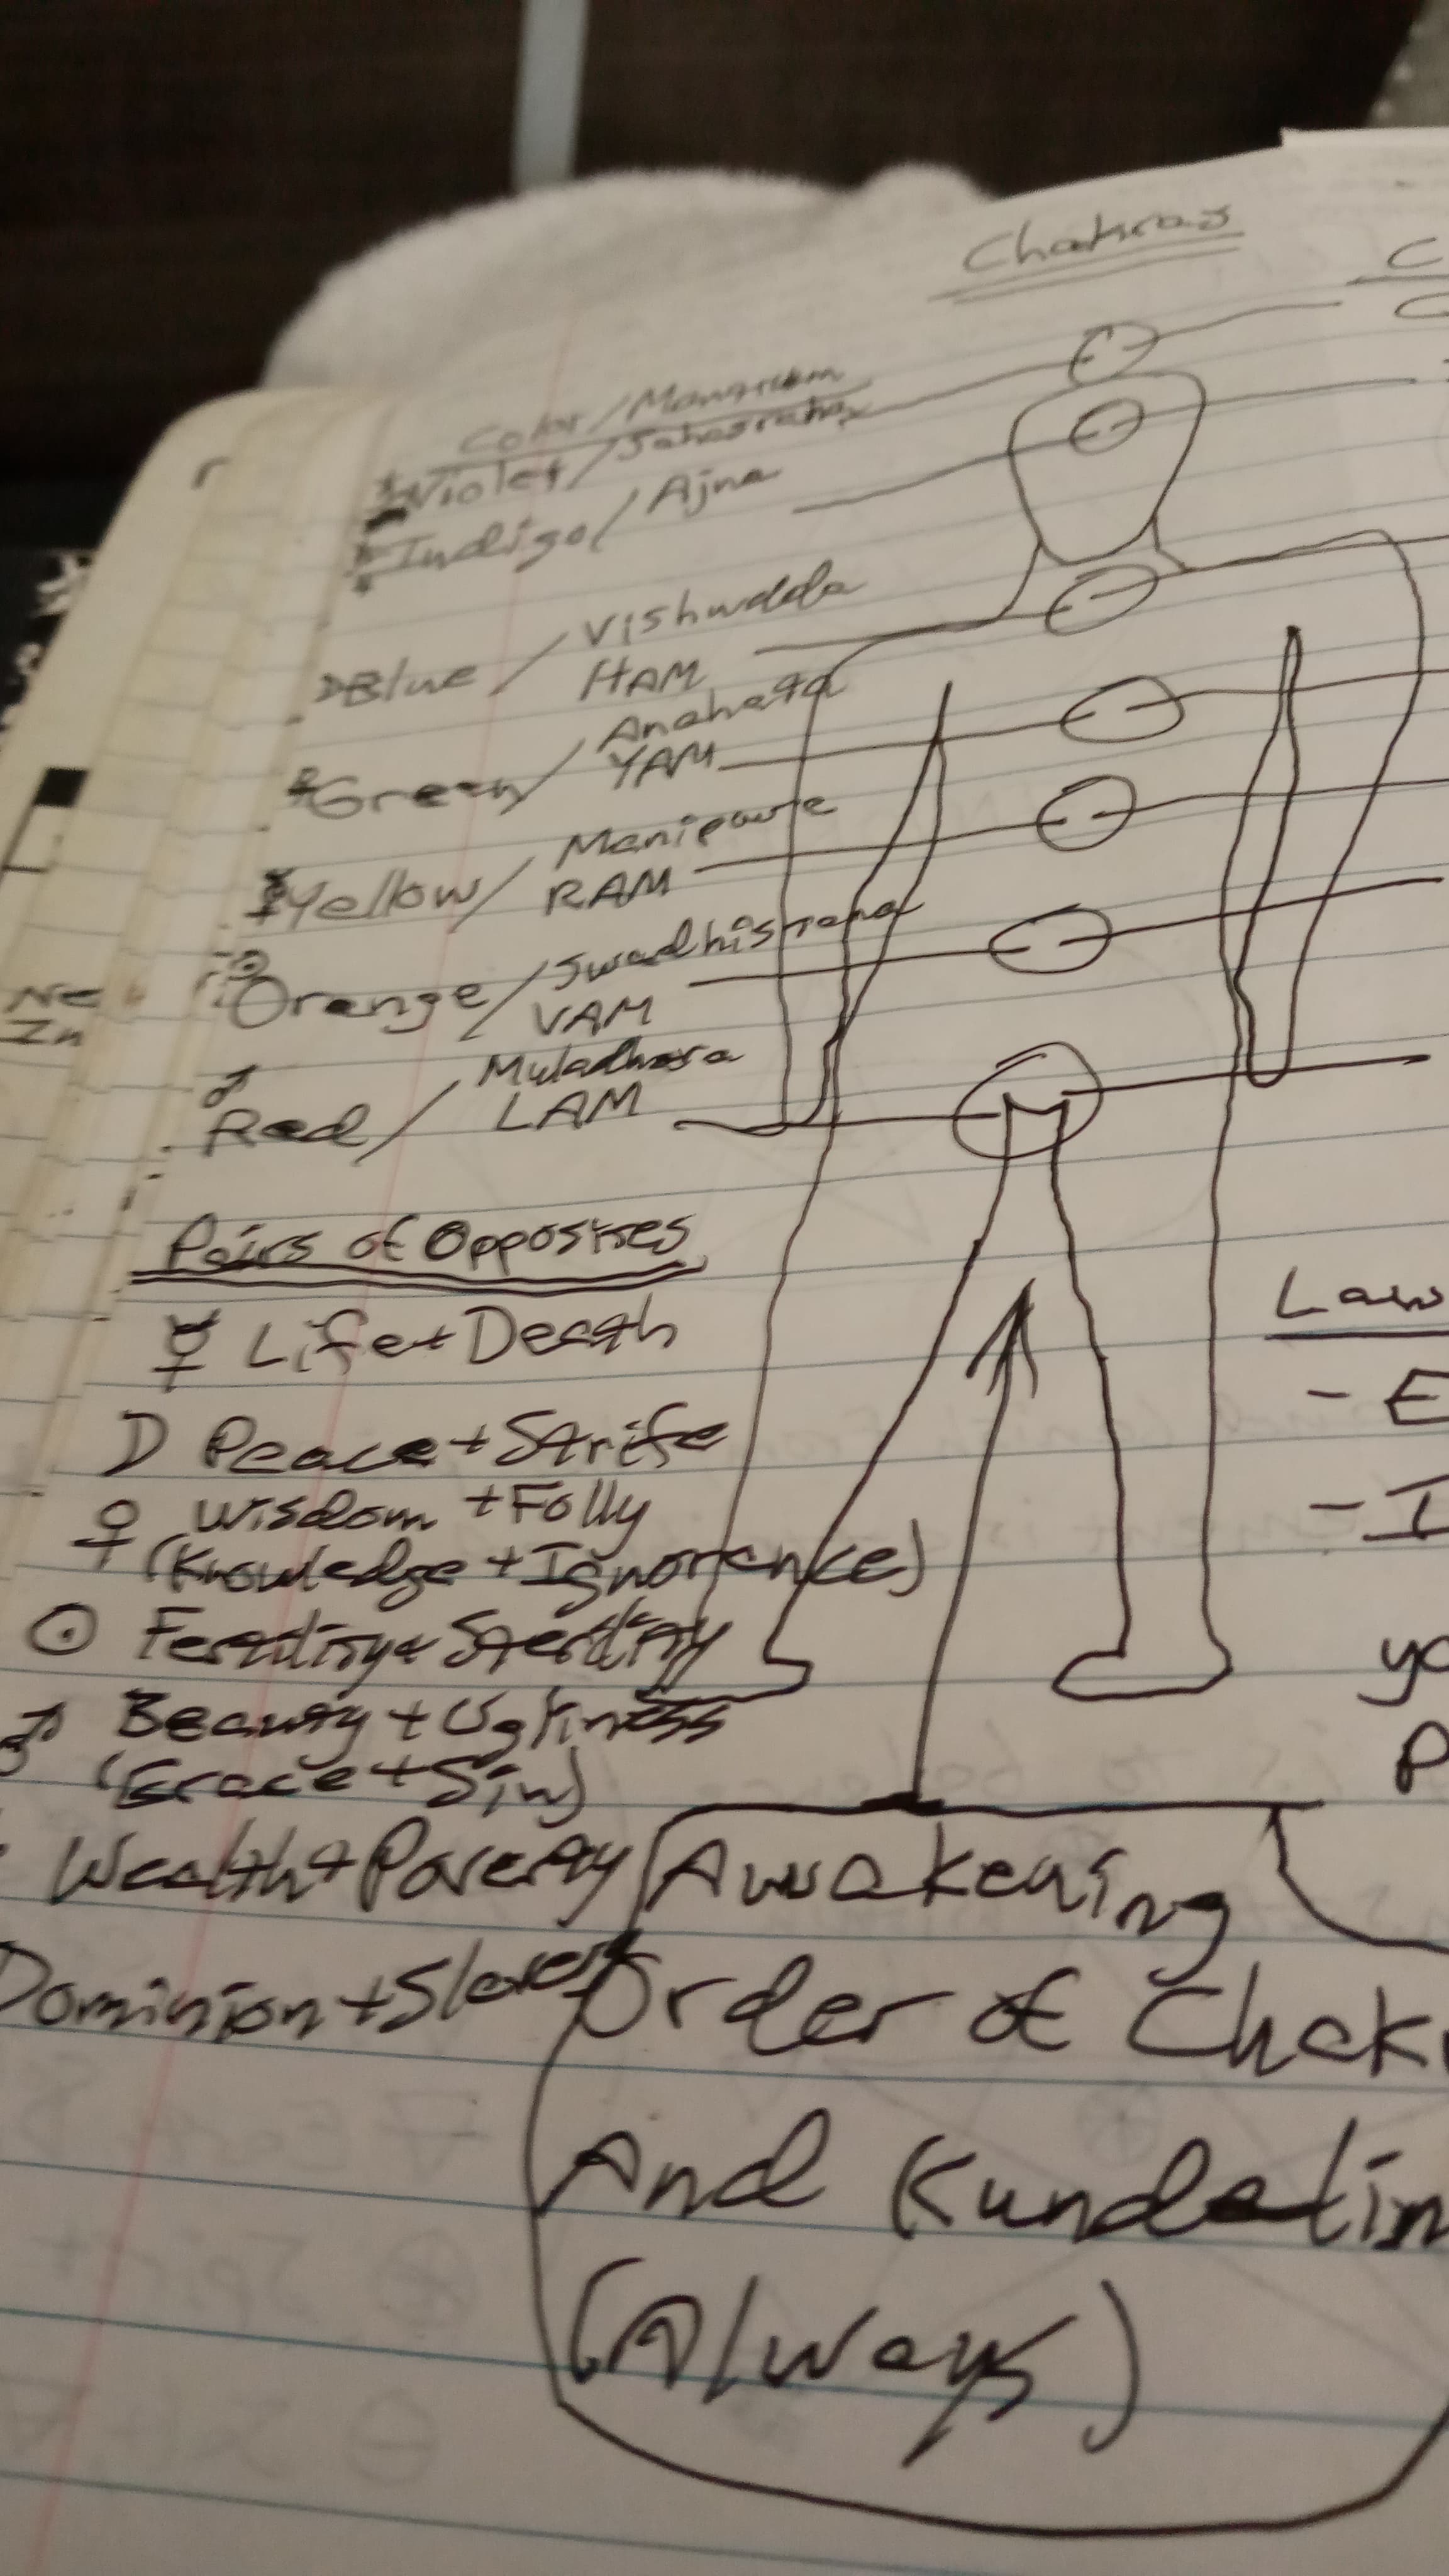 Chakras
Color/Mantram
Violet/Sahasraha
Indigo/Ajna
☽Blue/Vishudda
HAM
♀Green/Anahata
YAM
☿Yellow/Manipura
RAM
☉Orange/Swadhistana
VAM
♂
Red/Muladhara
LAM
Pairs of Opposites
☿ Life+Death
☽ Peace+Strife
♀ Wisdom+Folly
(Knowledge+Ignorance)
☉ Fertility+Sterility
♂ Beauty+Ugliness
(Grace+Sin)
Wealth+Poverty
Dominion+Slavery
Awakening
Order of Chak
And Kundalin
(Always)
Law
- E
- I
yo
P
Ne
In